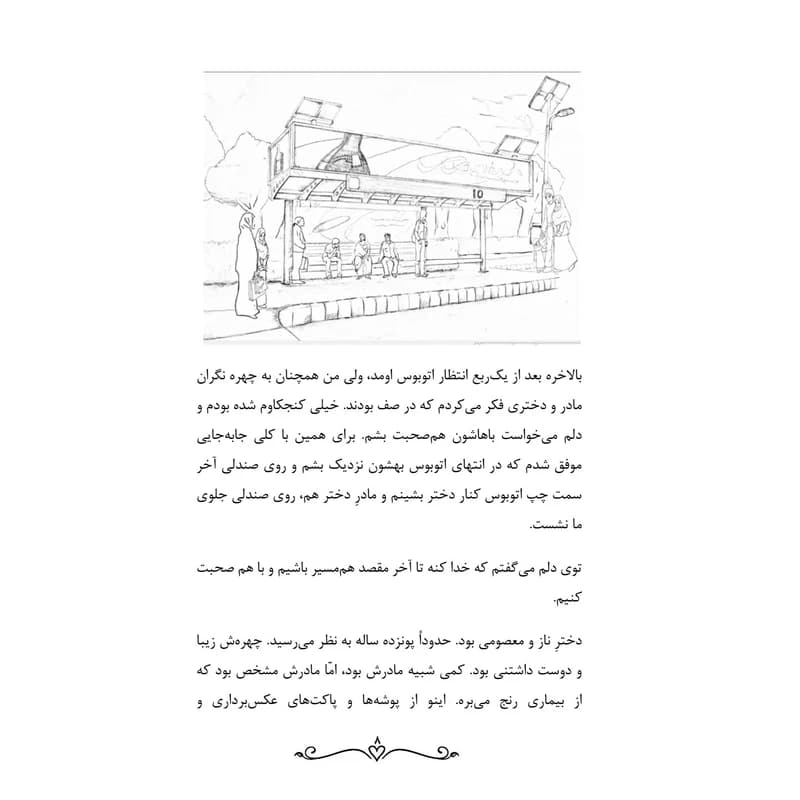 10
بالاخره بعد از یک‌ربع انتظار اتوبوس اومد، ولی من همچنان به چهره نگران
مادر و دختری فکر می‌کردم که در صف بودند. خیلی کنجکاوم شده بودم و
دلم می‌خواست باهاشون هم‌صحبت بشم. برای همین با کلی جابه‌جایی
موفق شدم که در انتهای اتوبوس بهشون نزدیک بشم و روی صندلی آخر
سمت چپ اتوبوس کنار دختر بشینم و مادرِ دختر هم، روی صندلی جلوی
ما نشست.
توی دلم می‌گفتم که خدا کنه تا آخر مقصد هم‌مسیر باشیم و با هم صحبت
کنیم.
دخترِ ناز و معصومی بود. حدوداً پونزده ساله به نظر می‌رسید. چهره‌ش زیبا
و دوست داشتنی بود. کمی شبیه مادرش بود، امّا مادرش مشخص بود که
از بیماری رنج می‌بره. اینو از پوشه‌ها و پاکت‌های عکس‌برداری و
۸